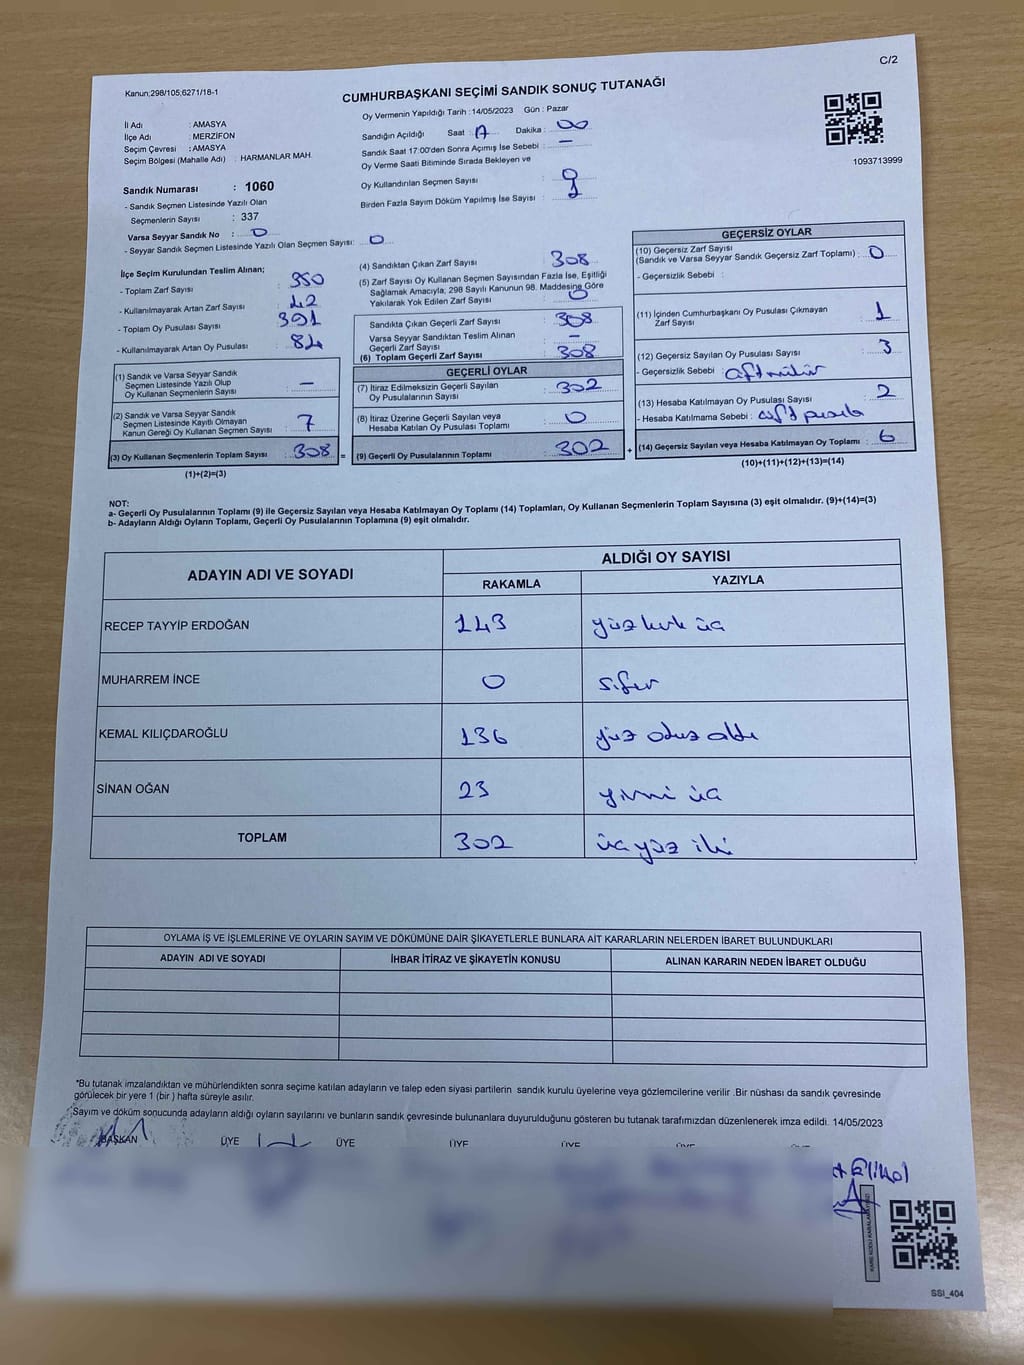 C/2
Kanun;298/105;6271/18-1
CUMHURBAŞKANI SEÇİMİ SANDIK SONUÇ TUTANAĞI
Oy Vermenin Yapıldığı Tarih : 14/05/2023 Gün : Pazar
İl Adı : AMASYA
İlçe Adı : MERZİFON
Seçim Çevresi : AMASYA
Seçim Bölgesi (Mahalle Adı) : HARMANLAR MAH.
Sandığın Açıldığı Saat : Dakika : 00
Sandık Saat 17:00'den Sonra Açımış İse Sebebi : —
Oy Verme Saati Bitiminde Sırada Bekleyen ve
Oy Kullandırılan Seçmen Sayısı :
Birden Fazla Sayım Döküm Yapılmış İse Sayısı :
1093713999
Sandık Numarası : 1060
- Sandık Seçmen Listesinde Yazılı Olan
Seçmenlerin Sayısı : 337
Varsa Seyyar Sandık No : 0
- Seyyar Sandık Seçmen Listesinde Yazılı Olan Seçmen Sayısı: 0
İlçe Seçim Kurulundan Teslim Alınan;
- Toplam Zarf Sayısı : 350
- Kullanılmayarak Artan Zarf Sayısı : 42
- Toplam Oy Pusulası Sayısı : 391
- Kullanılmayarak Artan Oy Pusulası : 84
(1) Sandık ve Varsa Seyyar Sandık
Seçmen Listesinde Yazılı Olup
Oy Kullanan Seçmenlerin Sayısı : —
(2) Sandık ve Varsa Seyyar Sandık
Seçmen Listesinde Kayıtlı Olmayan
Kanun Gereği Oy Kullanan Seçmen Sayısı : 7
(3) Oy Kullanan Seçmenlerin Toplam Sayısı : 308 =
(1)+(2)=(3)
(4) Sandıktan Çıkan Zarf Sayısı : 308
(5) Zarf Sayısı Oy Kullanan Seçmen Sayısından Fazla İse, Eşitliği
Sağlamak Amacıyla; 298 Sayılı Kanunun 98. Maddesine Göre
Yakılarak Yok Edilen Zarf Sayısı : 0
Sandıkta Çıkan Geçerli Zarf Sayısı : 308
Varsa Seyyar Sandıktan Teslim Alınan
Geçerli Zarf Sayısı : —
(6) Toplam Geçerli Zarf Sayısı : 308
GEÇERLİ OYLAR
(7) İtiraz Edilmeksizin Geçerli Sayılan
Oy Pusulalarının Sayısı : 302
(8) İtiraz Üzerine Geçerli Sayılan veya
Hesaba Katılan Oy Pusulası Toplamı : 0
(9) Geçerli Oy Pusulalarının Toplamı : 302 +
GEÇERSİZ OYLAR
(10) Geçersiz Zarf Sayısı
(Sandık ve Varsa Seyyar Sandık Geçersiz Zarf Toplamı) : 0
- Geçersizlik Sebebi :
(11) İçinden Cumhurbaşkanı Oy Pusulası Çıkmayan
Zarf Sayısı : 1
(12) Geçersiz Sayılan Oy Pusulası Sayısı : 3
- Geçersizlik Sebebi : çift mühür
(13) Hesaba Katılmayan Oy Pusulası Sayısı : 2
- Hesaba Katılmama Sebebi : çift pusula
(14) Geçersiz Sayılan veya Hesaba Katılmayan Oy Toplamı : 6
(10)+(11)+(12)+(13)=(14)
NOT:
a- Geçerli Oy Pusulalarının Toplamı (9) ile Geçersiz Sayılan veya Hesaba Katılmayan Oy Toplamı (14) Toplamları, Oy Kullanan Seçmenlerin Toplam Sayısına (3) eşit olmalıdır. (9)+(14)=(3)
b- Adayların Aldığı Oyların Toplamı, Geçerli Oy Pusulalarının Toplamına (9) eşit olmalıdır.
ADAYIN ADI VE SOYADI
ALDIĞI OY SAYISI
RAKAMLA YAZIYLA
RECEP TAYYİP ERDOĞAN 143 yüz kırk üç
MUHARREM İNCE 0 sıfır
KEMAL KILIÇDAROĞLU 136 yüz otuz altı
SİNAN OĞAN 23 yirmi üç
TOPLAM 302 üç yüz iki
OYLAMA İŞ VE İŞLEMLERİNE VE OYLARIN SAYIM VE DÖKÜMÜNE DAİR ŞİKAYETLERLE BUNLARA AİT KARARLARIN NELERDEN İBARET BULUNDUKLARI
ADAYIN ADI VE SOYADI İHBAR İTİRAZ VE ŞİKAYETİN KONUSU ALINAN KARARIN NEDEN İBARET OLDUĞU
*Bu tutanak imzalandıktan ve mühürlendikten sonra seçime katılan adayların ve talep eden siyasi partilerin sandık kurulu üyelerine veya gözlemcilerine verilir .Bir nüshası da sandık çevresinde
görülecek bir yere 1 (bir ) hafta süreyle asılır.
Sayım ve döküm sonucunda adayların aldığı oyların sayılarını ve bunların sandık çevresinde bulunanlara duyurulduğunu gösteren bu tutanak tarafımızdan düzenlenerek imza edildi. 14/05/2023
BAŞKAN ÜYE ÜYE ÜYE ÜYE ÜYE
SSI_404